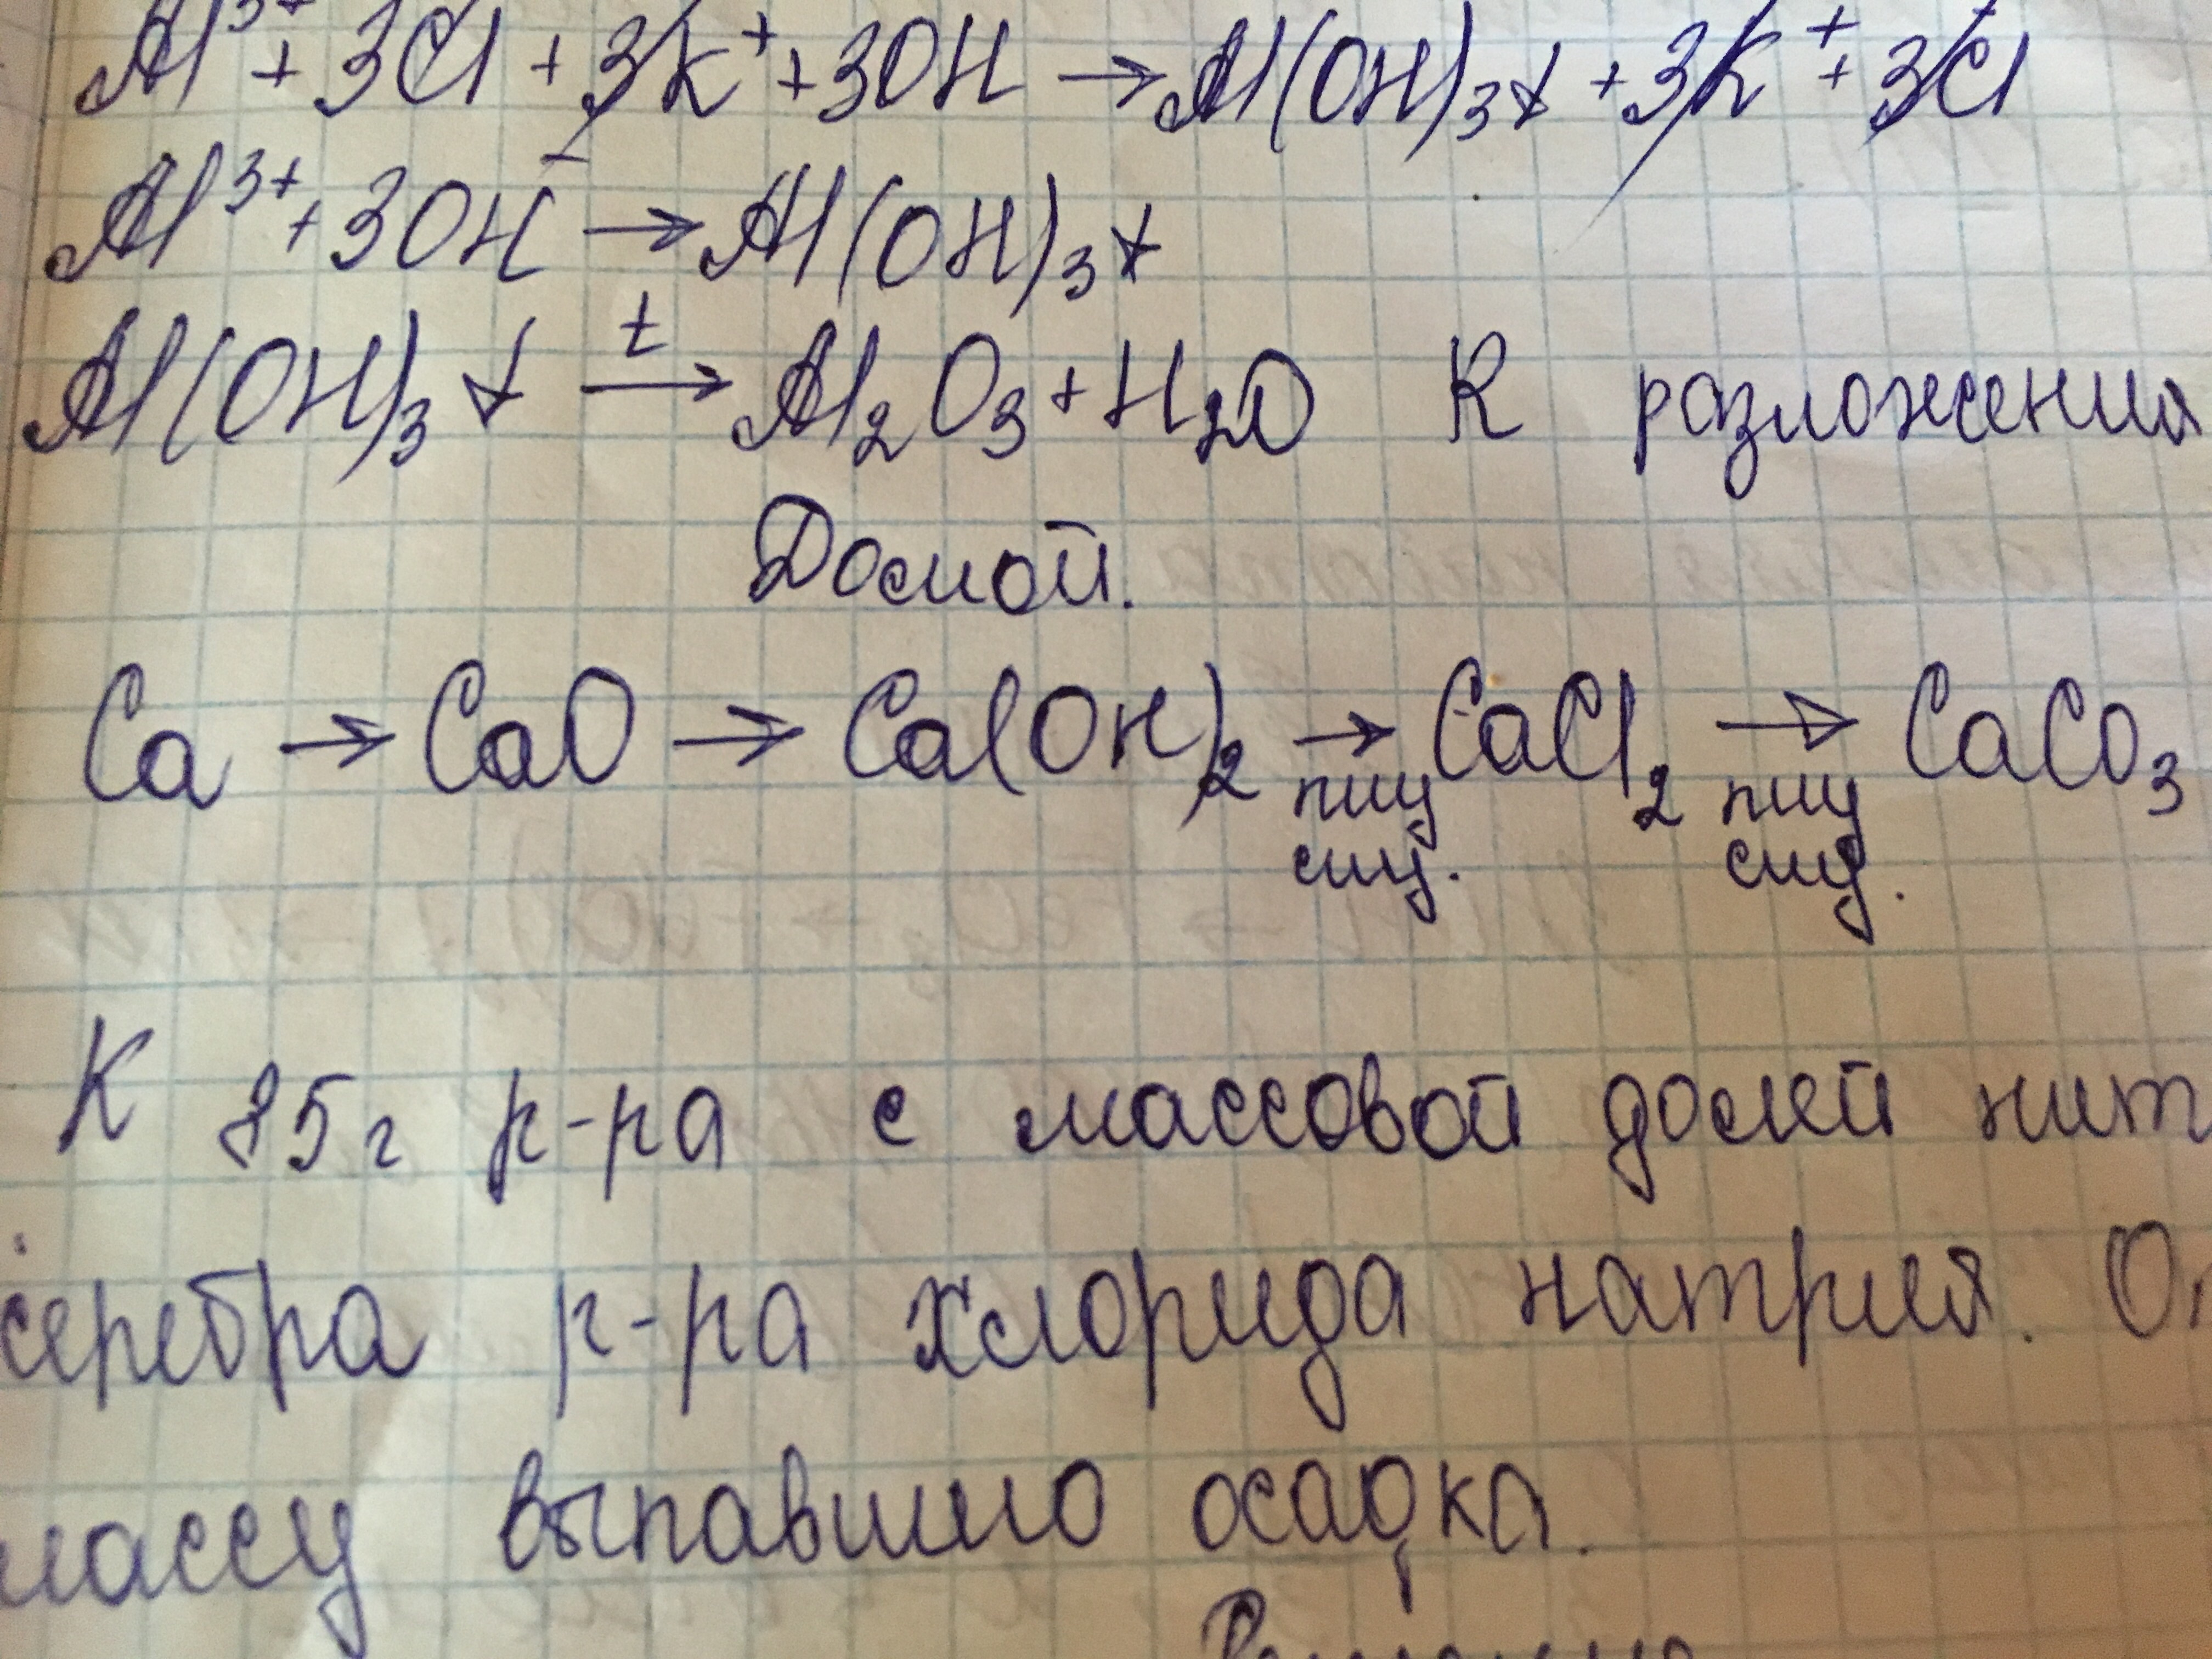 Al³⁺ + 3Cl + 3K⁺ + 3OH → Al(OH)₃↓ + 3K⁺ + 3Cl
Al³⁺ + 3OH⁻ → Al(OH)₃↓
Al(OH)₃↓ →ᵗ Al₂O₃ + H₂O R разложения
Домой.
Ca → CaO → Ca(OH)₂ → CaCl₂ → CaCO₃
пиу пиу
сиу. сиу.
К 85г р-ра с массовой долей нит
серебра р-ра хлорида натрия. О
массу выпавшио осадка.